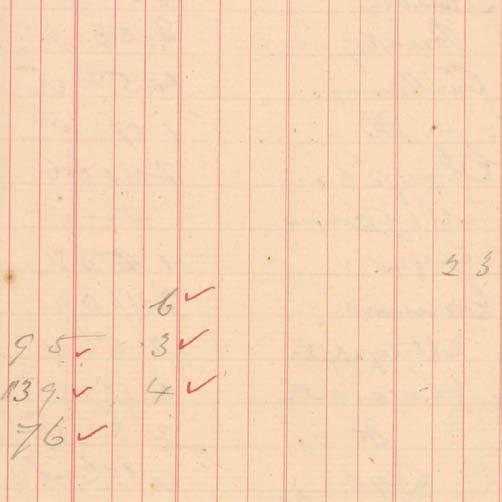 2 3
6 ✓
95 ✓ 3 ✓
139. ✓ 4 ✓
76 ✓